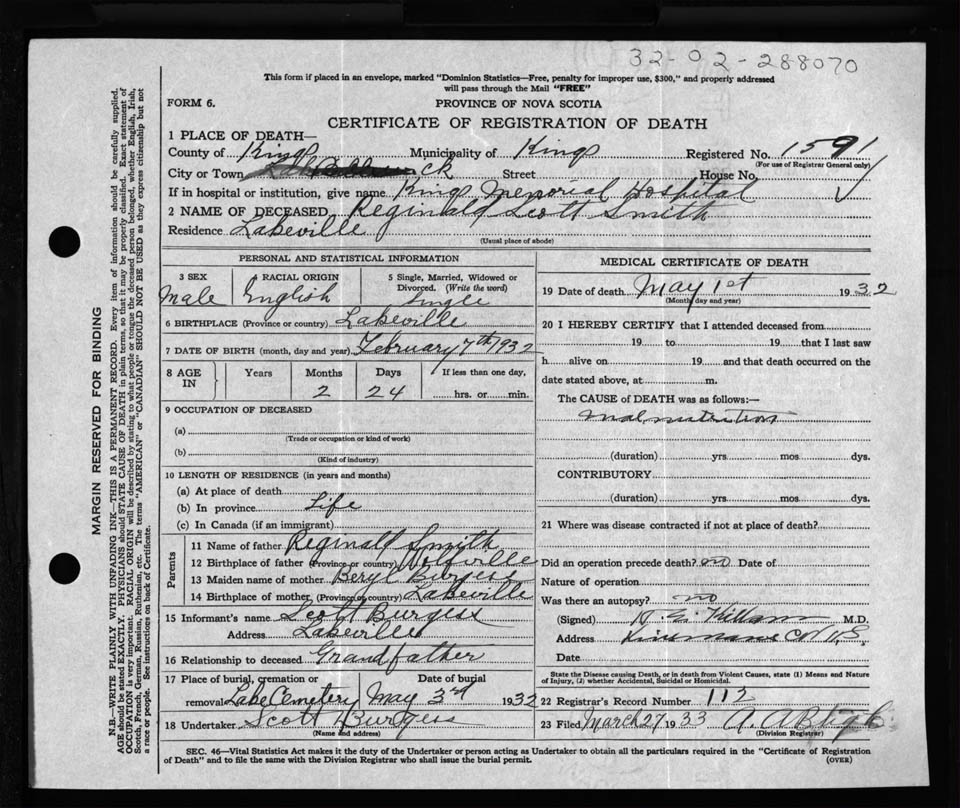 32-02-288070
This form if placed in an envelope, marked "Dominion Statistics—Free, penalty for improper use, $300," and properly addressed
will pass through the Mail "FREE"
FORM 6.
PROVINCE OF NOVA SCOTIA
CERTIFICATE OF REGISTRATION OF DEATH
1 PLACE OF DEATH—
County of Kings Municipality of Kings Registered No. 1591
(For use of Registrar General only)
City or Town Street House No.
If in hospital or institution, give name Kings Memorial Hospital
2 NAME OF DECEASED Reginald Scott Smith
Residence Lakeville
(Usual place of abode)
PERSONAL AND STATISTICAL INFORMATION
3 SEX Male
4 RACIAL ORIGIN English
5 Single, Married, Widowed or Divorced. (Write the word) Single
6 BIRTHPLACE (Province or country) Lakeville
7 DATE OF BIRTH (month, day and year) February 7th 1932
8 AGE IN Years Months 2 Days 24 If less than one day, hrs. or min.
9 OCCUPATION OF DECEASED
(a)
(Trade or occupation or kind of work)
(b)
(Kind of industry)
10 LENGTH OF RESIDENCE (in years and months)
(a) At place of death
(b) In province Life
(c) In Canada (if an immigrant)
Parents
11 Name of father Reginald Smith
12 Birthplace of father (Province or country) Wolfville
13 Maiden name of mother Beryl Burgess
14 Birthplace of mother (Province or country) Lakeville
15 Informant's name Scott Burgess
Address Lakeville
16 Relationship to deceased Grandfather
17 Place of burial, cremation or removal Lake Cemetery Date of burial May 3rd 1932
18 Undertaker Scott Burgess
(Name and address)
MEDICAL CERTIFICATE OF DEATH
19 Date of death May 1st 1932
(Month, day and year)
20 I HEREBY CERTIFY that I attended deceased from
19 to 19 that I last saw
h alive on 19 and that death occurred on the
date stated above, at m.
The CAUSE of DEATH was as follows:—
Malnutrition
(duration) yrs mos dys.
CONTRIBUTORY
(duration) yrs mos dys.
21 Where was disease contracted if not at place of death?
Did an operation precede death? no Date of
Nature of operation
Was there an autopsy? no
(Signed) M.D.
Address
Date
State the Disease causing Death, or in death from Violent Causes, state (1) Means and Nature
of Injury, (2) whether Accidental, Suicidal or Homicidal.
22 Registrar's Record Number 112
23 Filed March 27 1933
(Division Registrar)
SEC. 46—Vital Statistics Act makes it the duty of the Undertaker or person acting as Undertaker to obtain all the particulars required in the "Certificate of Registration
of Death" and to file the same with the Division Registrar who shall issue the burial permit.
(OVER)
MARGIN RESERVED FOR BINDING
N.B.—WRITE PLAINLY WITH UNFADING INK—THIS IS A PERMANENT RECORD. Every item of information should be carefully supplied.
AGE should be stated EXACTLY. PHYSICIANS should STATE CAUSE OF DEATH in plain terms, so that it may be properly classified. Exact statement of
OCCUPATION is very important. RACIAL ORIGIN will be described by stating to what people or tongue the deceased person belonged, whether English, Irish,
Scotch, French, German, Russian, Ruthenian, etc. The terms "AMERICAN" or "CANADIAN" SHOULD NOT BE USED as they express citizenship but not
a race or people. See instructions on back of Certificate.